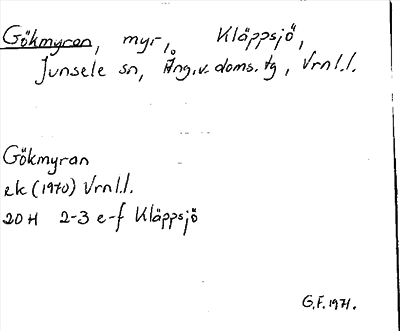 Gökmyran, myr, Kläppsjö,
Junsele sn, Ång.v.doms.tg, Vrnl.l.
Gökmyran
ek (1970) Vrnl.l.
20 H 2-3 e-f Kläppsjö
G.F. 1971.